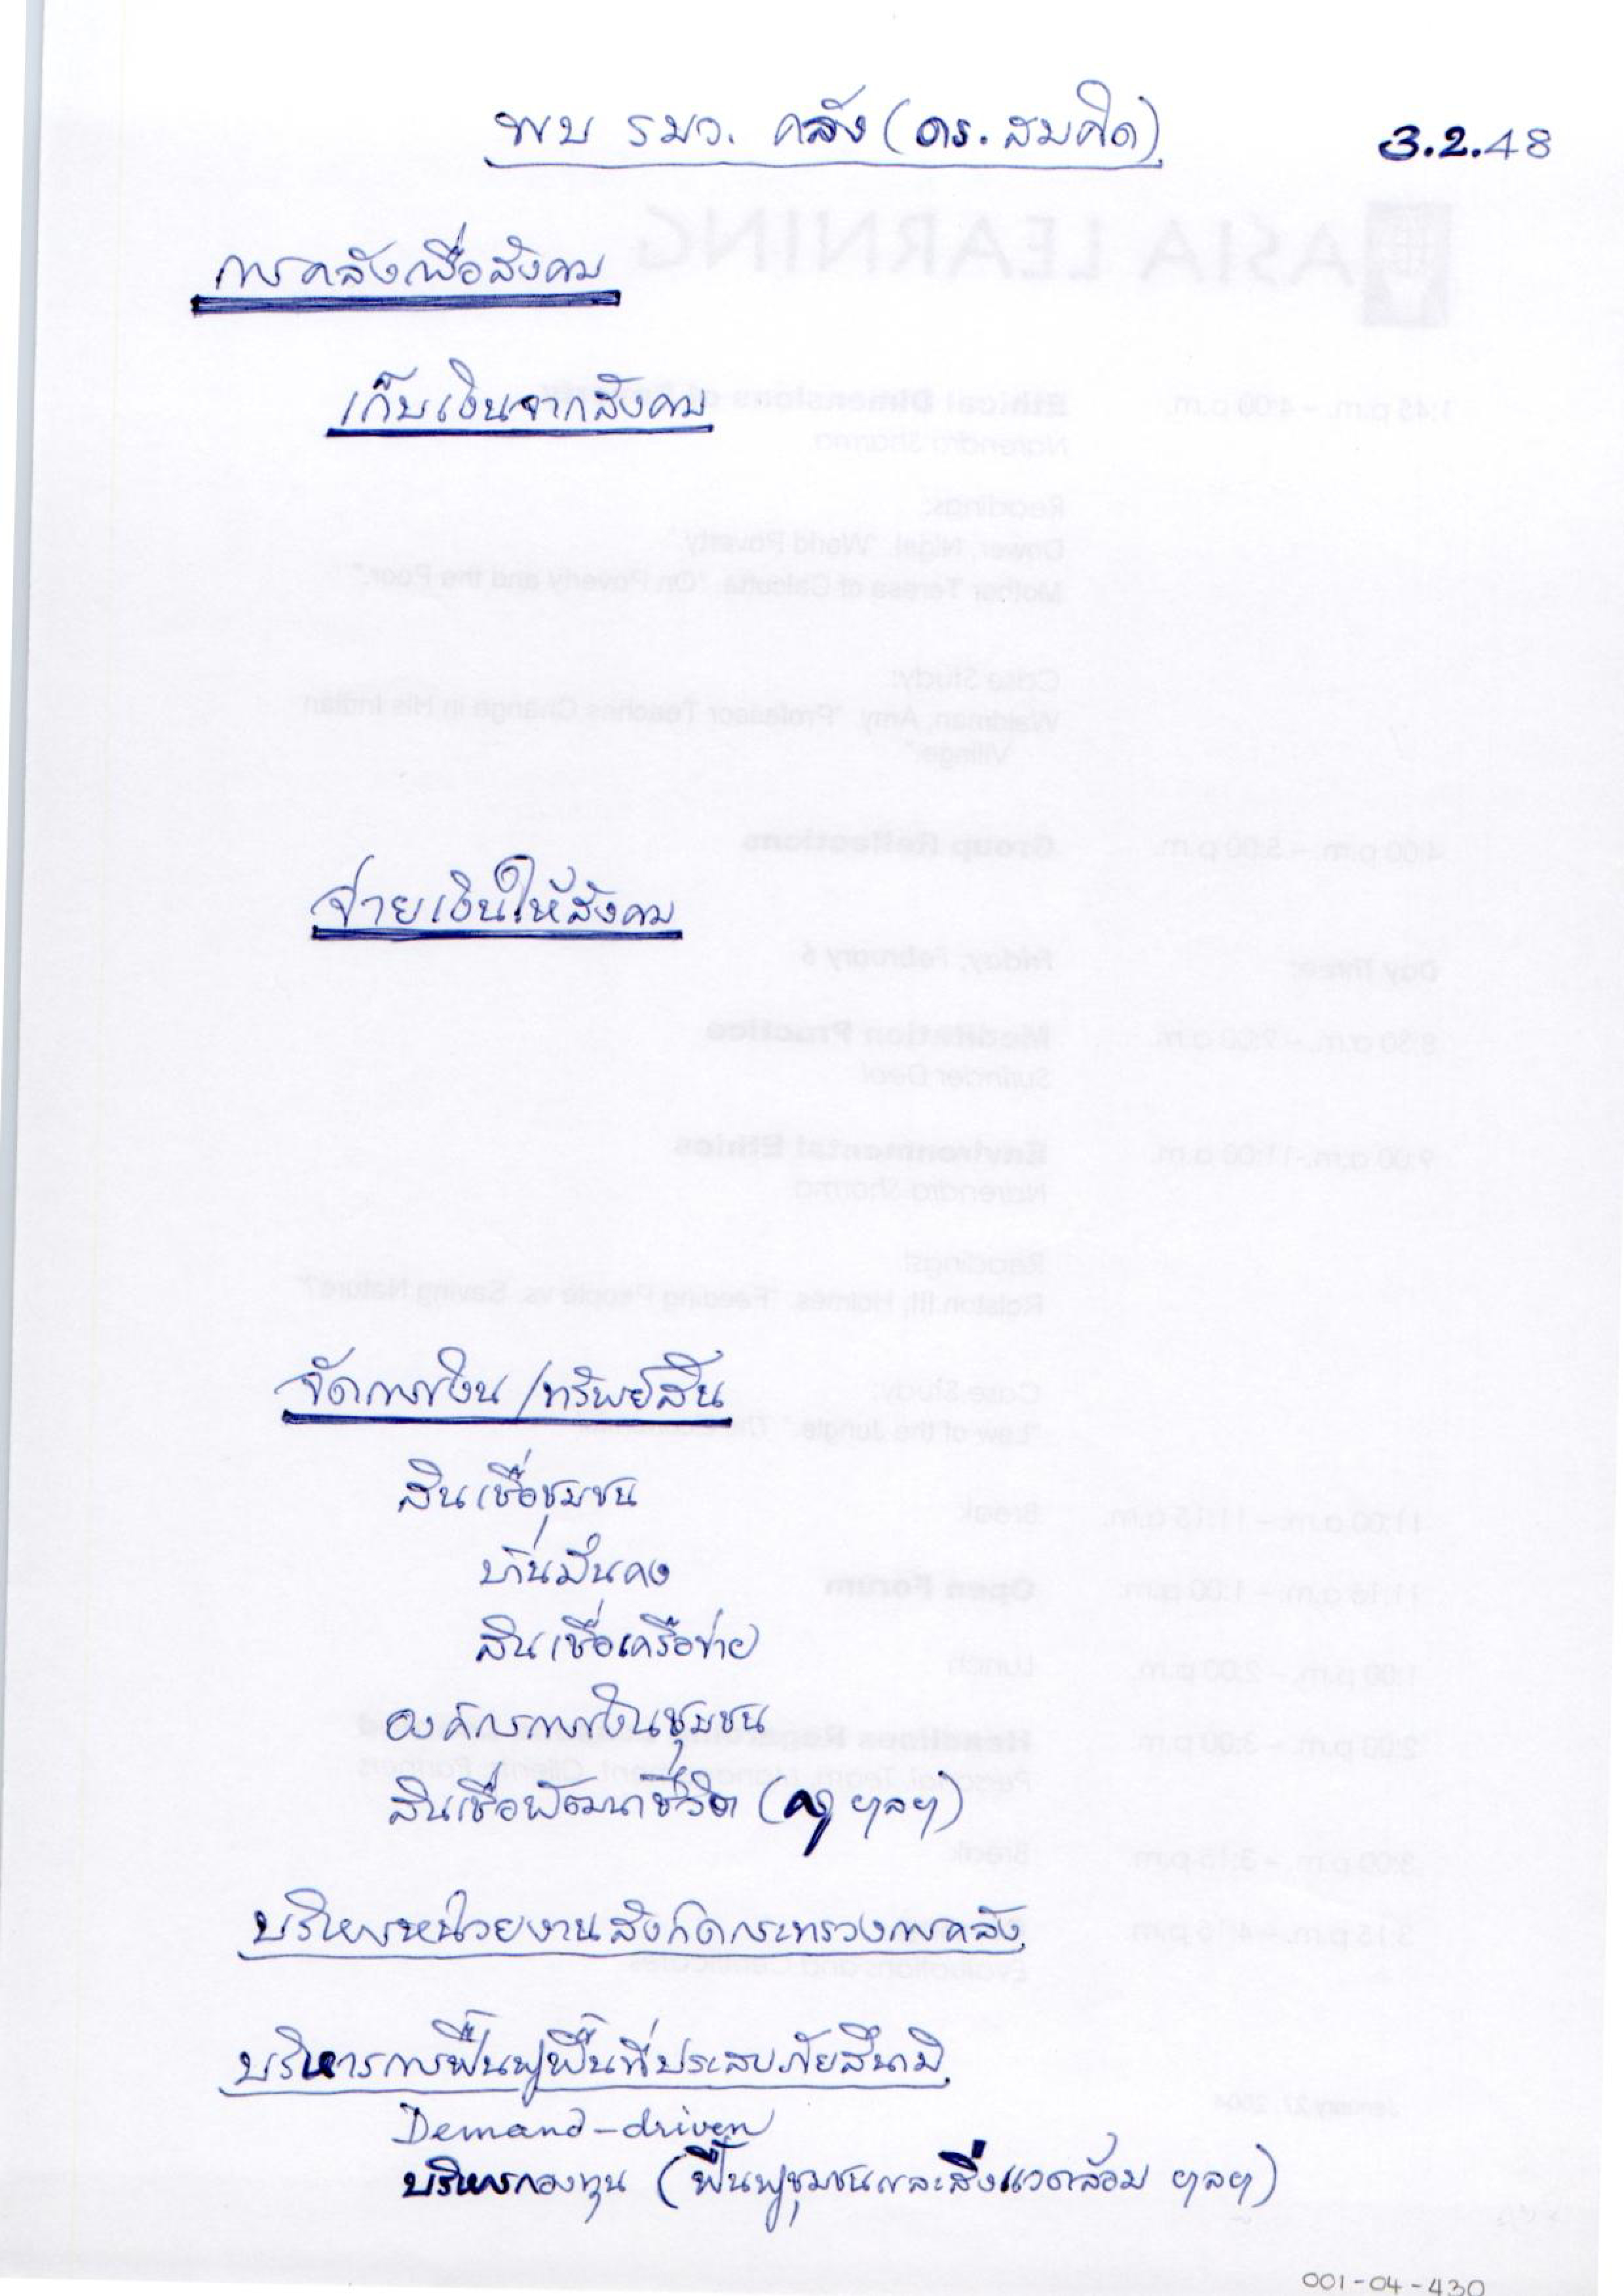 พบ รมว. คลัง (ดร. สมคิด)
3.2.48
การคลังเพื่อสังคม
เก็บเงินจากสังคม
จ่ายเงินให้สังคม
จัดการเงิน/ทรัพย์สิน
สินเชื่อชุมชน
บ้านมั่นคง
สินเชื่อเครือข่าย
องค์กรการเงินชุมชน
สินเชื่อพัฒนาชีวิต (ครู ฯลฯ)
บริหารหน่วยงานสังกัดกระทรวงการคลัง
บริหารการฟื้นฟูพื้นที่ประสบภัยสึนามิ
Demand-driven
บริหารกองทุน (ฟื้นฟูชุมชนและสิ่งแวดล้อม ฯลฯ)
001-04-430